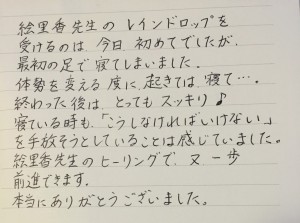 絵里香先生のレインドロップを
受けるのは、今日初めてでしたが、
最初の足で寝てしまいました。
体勢を変える度に、起きては寝て…。
終わった後は、とってもスッキリ♪
寝ている時も、「こうしなければいけない」
を手放そうとしていることは感じていました。
絵里香先生のヒーリングで、又一歩
前進できます。
本当にありがとうございました。